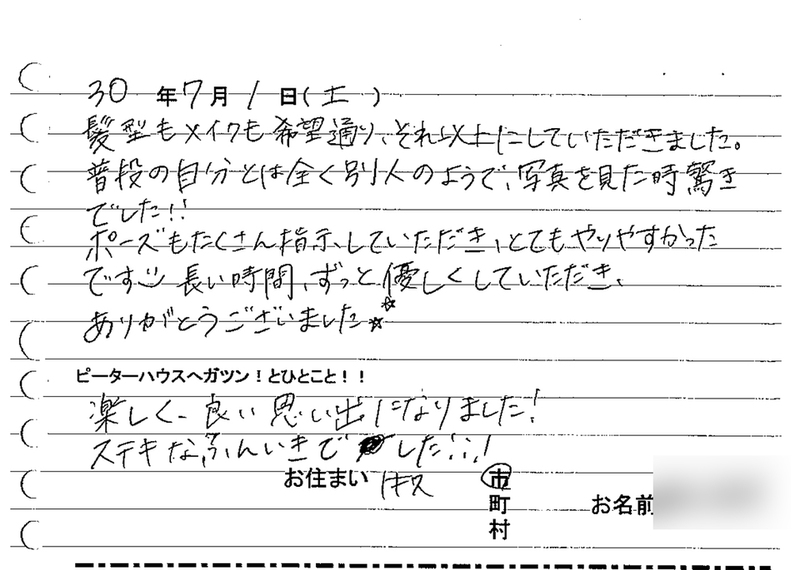 30 年7月 1 日(土 )
髪型もメイクも希望通り、それ以上にしていただきました。
普段の自分とは全く別人のようで、写真を見た時驚き
でした!!
ポーズもたくさん指示していただき、とてもやりやすかった
です 長い時間、ずっと優しくしていただき、
ありがとうございました☆☆
ピーターハウスへガツン!とひとこと!!
楽しく、良い思い出になりました!
ステキなふんいきで した!!
お住まい 市
町
村
お名前